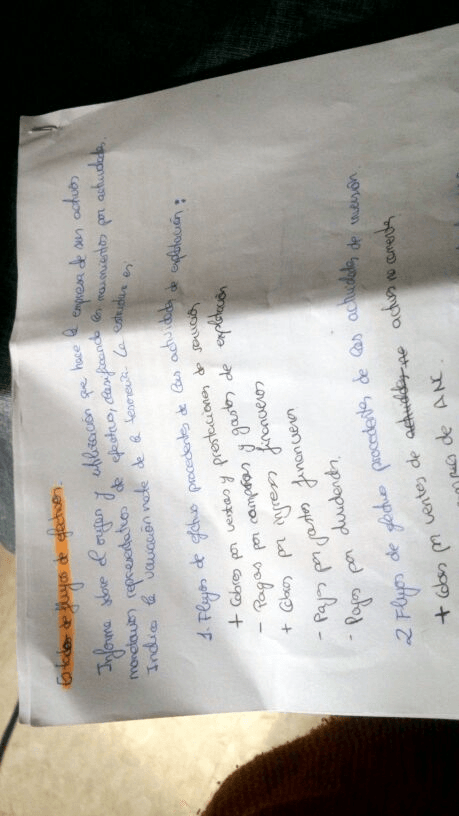 Estados de flujos de efectivo.
Informe sobre el origen y utilización que hace la empresa de sus activos
monetarios representativos de efectivo, clasificando los movimientos por actividades.
Indica la variación neta de la tesorería. La estructura es:
1. Flujos de efectivo procedentes de las actividades de explotación:
+ Cobros por ventas y prestaciones de servicios
- Pagos por compras y gastos de explotación
+ Cobros por ingresos financieros
- Pagos por gastos financieros
- Pagos por dividendos.
2 Flujos de efectivo procedentes de las actividades de inversión.
+ Cobros por ventas de activos no corrientes
de ANC.